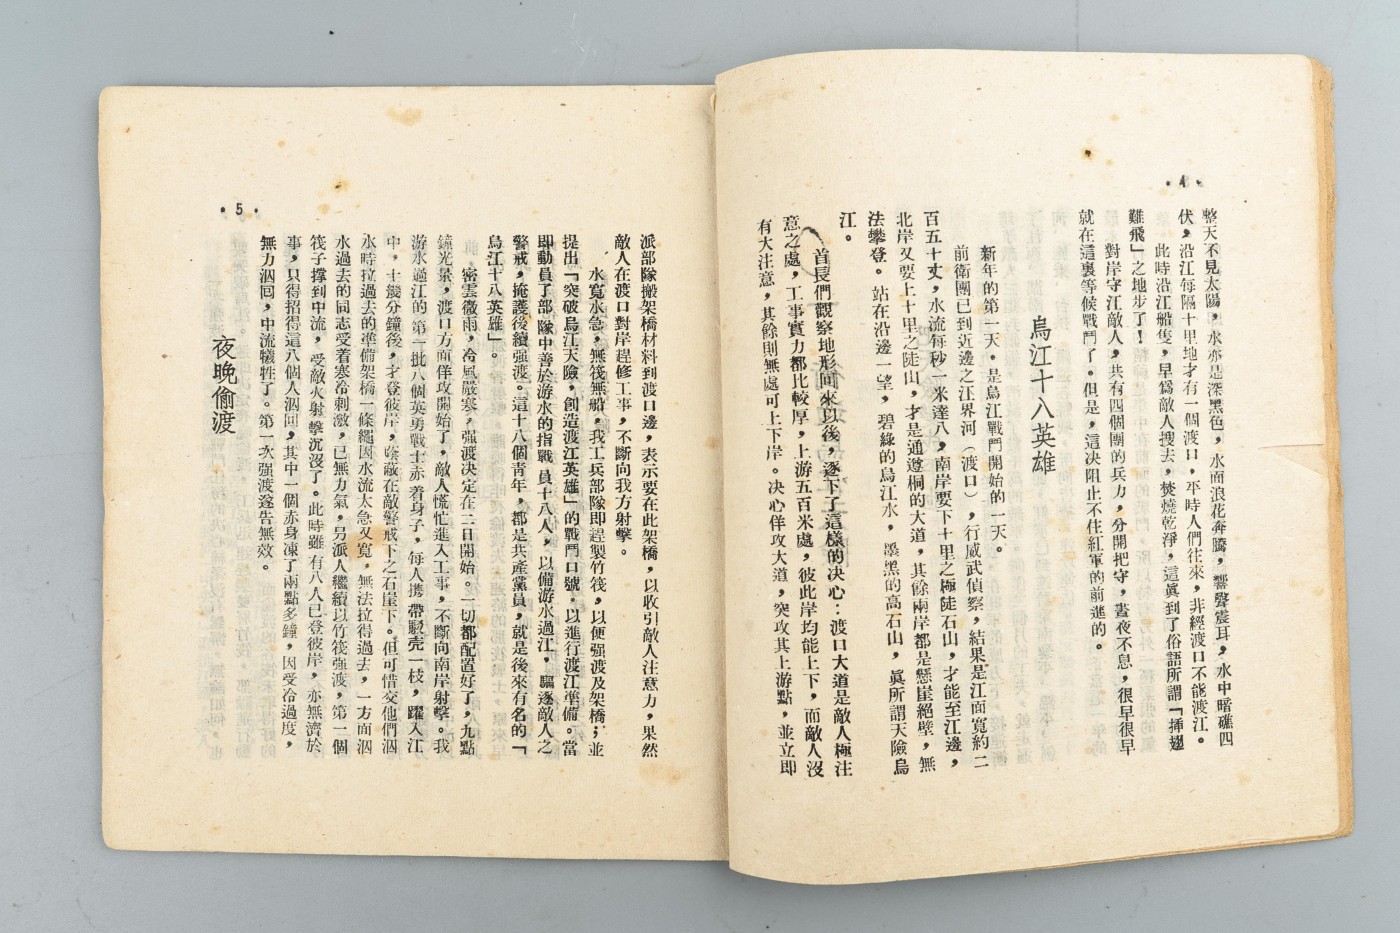 ·4·
整天不見太陽，水亦是深黑色，水面浪花奔騰，響聲震耳，水中暗礁四
伏，沿江每隔十里地才有一個渡口，平時人們往來，非經渡口不能渡江。
此時沿江船隻，早爲敵人搜去，焚燒乾淨，這眞到了俗語所謂「挿翅
難飛」之地步了！
對岸守江敵人，共有四個團的兵力，分開把守，晝夜不息，很早很早
就在這裏等候戰鬥了。但是，這决阻止不住紅軍的前進的。
烏江十八英雄
新年的第一天。是烏江戰鬥開始的一天。
前衛團已到近邊之江界河（渡口），行威武偵察，結果是江面寬約二
百五十丈，水流每秒一米達八，南岸要下十里之極陡石山，才能至江邊，
北岸又要上十里之陡山，才是通遵桐的大道，其餘兩岸都是懸崖絕壁，無
法攀登。站在沿邊一望，碧綠的烏江水，墨黑的高石山，眞所謂天險烏
江。
首長們觀察地形回來以後，逐下了這樣的决心：渡口大道是敵人極注
意之處，工事實力都比較厚，上游五百米處，彼此岸均能上下，而敵人沒
有大注意，其餘則無處可上下岸。决心佯攻大道，突攻其上游點，並立即
·5·
派部隊搬架橋材料到渡口邊，表示要在此架橋，以收引敵人注意力，果然
敵人在渡口對岸趕修工事，不斷向我方射擊。
水寬水急，無筏無船，我工兵部隊即趕製竹筏，以便强渡及架橋；並
提出「突破烏江天險，創造渡江英雄」的戰鬥口號。以進行渡江準備。當
即動員了部隊中善於游水的指戰員十八人，以備游水過江，驅逐敵人之
警戒，掩護後續强渡。這十八個青年，都是共產黨員，就是後來有名的「
烏江十八英雄」。
密雲微雨，冷風嚴寒，强渡决定在二日開始。一切都配置好了，九點
鐘光景，渡口方面佯攻開始了，敵人慌忙進入工事，不斷向南岸射擊。我
游水過江的第一批八個英勇戰士赤着身子，每人携帶駁壳一枝，躍入江
中，十幾分鐘後，才登彼岸，蔭蔽在敵警戒下之石崖下。但可惜交他們泅
水時拉過去的準備架橋一條繩因水流太急又寬，無法拉得過去，一方面泅
水過去的同志受着寒冷刺激，已無力氣，另派人繼續以竹筏强渡，第一個
筏子撑到中流，受敵火射擊沉沒了。此時雖有八人已登彼岸，亦無濟於
事，只得招得這八個人泅回，其中一個赤身凍了兩點多鐘，因受冷過度，
無力泅囘，中流犧牲了。第一次强渡遂告無效。
夜晚偷渡